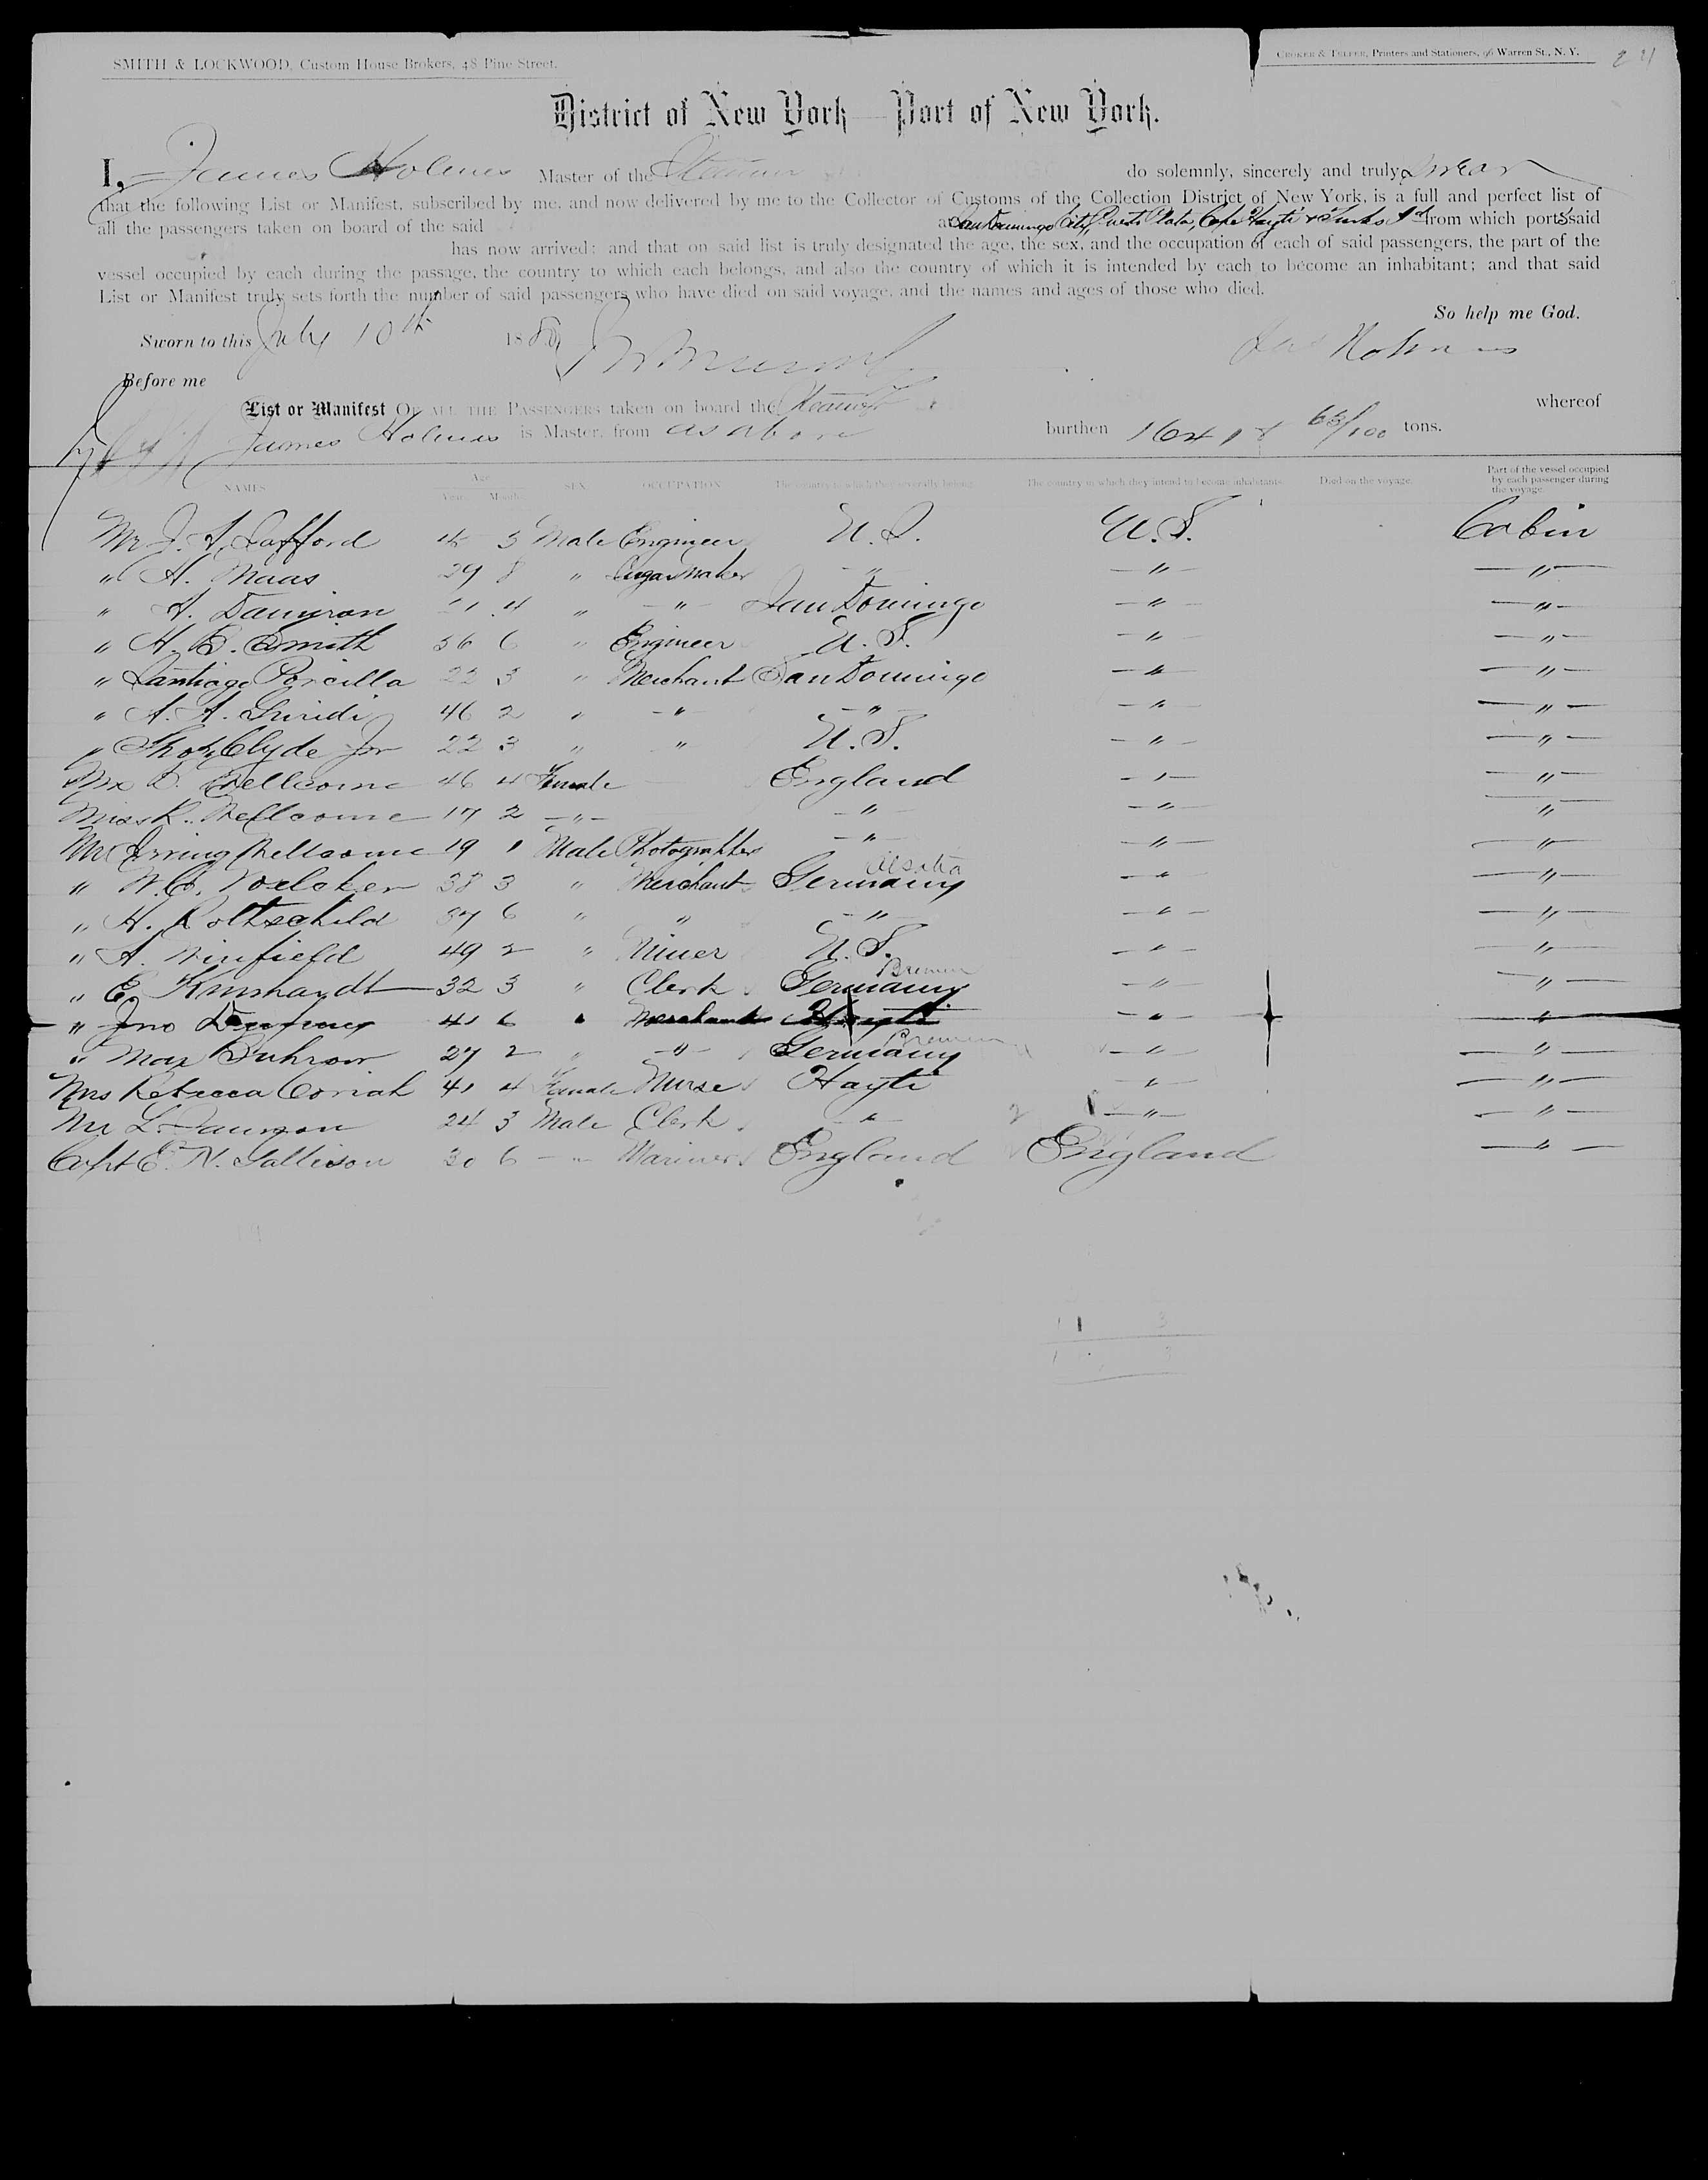 SMITH & LOCKWOOD, Custom House Brokers, 48 Pine Street.
CROKER & TELFER, Printers and Stationers, 96 Warren St., N. Y.
District of New York — Port of New York.
I, James Holmes Master of the Steamer do solemnly, sincerely and truly swear
that the following List or Manifest, subscribed by me, and now delivered by me to the Collector of Customs of the Collection District of New York, is a full and perfect list of
all the passengers taken on board of the said at San Domingo City, Puerto Plata, Cape Hayti & Turks Isd from which ports said
has now arrived; and that on said list is truly designated the age, the sex, and the occupation of each of said passengers, the part of the
vessel occupied by each during the passage, the country to which each belongs, and also the country of which it is intended by each to become an inhabitant; and that said
List or Manifest truly sets forth the number of said passengers who have died on said voyage, and the names and ages of those who died.
So help me God.
Sworn to this July 10th 188 Jas Holmes
Before me
List or Manifest OF ALL THE PASSENGERS taken on board the Steamer whereof
James Holmes is Master, from as above burthen tons.
NAMES Age Years Months SEX OCCUPATION The country to which they severally belong The country in which they intend to become inhabitants Died on the voyage. Part of the vessel occupied by each passenger during the voyage
Mr J. A. Safford 3 Male Engineer U. S. U. S. Cabin
" H. Maas 29 8 " Sugar Maker " " "
" A. 4 " " San Domingo " "
" H. B. Smith 36 6 " Engineer U. S. " "
" Santiago Porcilla 22 3 " Merchant San Domingo " "
" A. A. Guridi 46 2 " " " " "
" Thos Clyde Jr 22 3 " " U. S. " "
46 4 Female England " "
Miss K. Wellcome 17 2 " " " "
Mr Irving Wellcome 19 1 Male Photographer " " "
" Voelcker 38 3 " Merchant Germany " "
" H. Rothschild 37 6 " " " " "
" A. Winfield 49 2 " Miner U. S. " "
" E. 32 3 " Clerk Germany Bremen " "
" Jno 41 6 " Merchant Hayti " "
" Max Buhrow 27 2 " " Germany Bremen " "
Mrs Rebecca Coriah 41 4 Female Nurse Hayti " "
Mr L. 24 3 Male Clerk " " "
Capt E. N. Gallison 30 6 " Mariner England England "